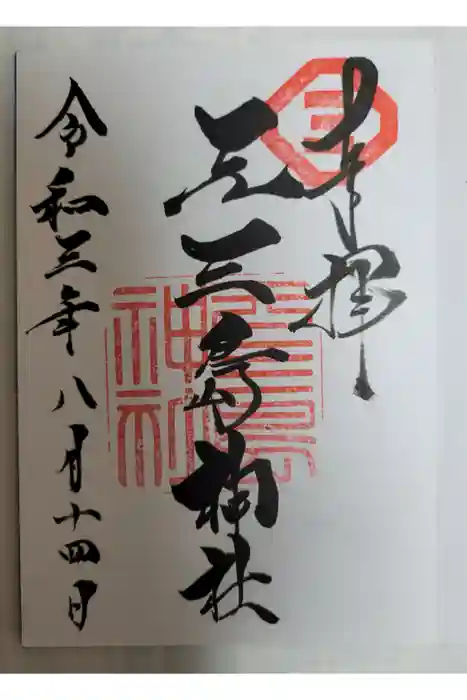 奉拝
三
元三島神社
令和三年八月十四日